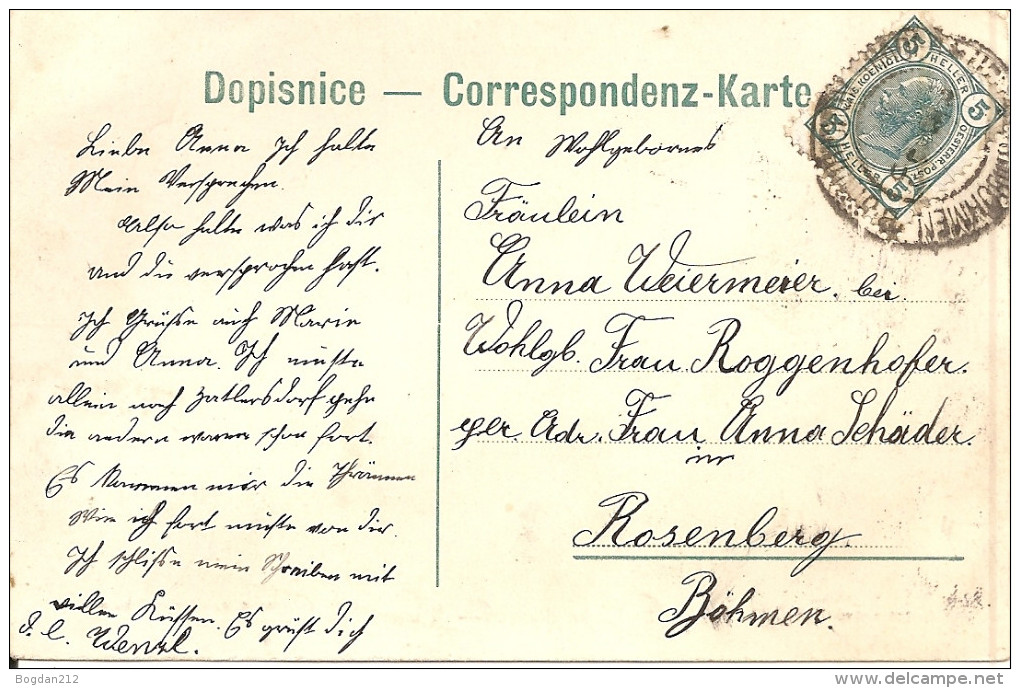 Dopisnice — Correspondenz-Karte
5 HELLER 5
HELLER
OESTERR. POST
KAIS. KOENIGL.
Liebe Anna Ich halte
Mein Versprechen.
Also halte was ich dir
und du versprochen hast.
Ich Grüsse auch Marie
und Anna. Ich musste
allein nach Zatlersdorf gehn
die andern waren schon fort.
Es kammen mir die Thränen
Wie ich fort musste von dir.
Ich schlisse mein Schreiben mit
villen Küssen. Es grüst dich
d. l. Wenzl.
An Wohlgebornes
Fräulein
Anna Weiermeier. bei
Wohlgb. Frau Roggenhofer.
per Adr. Frau Anna Schäder.
in
Rosenberg.
Böhmen.
Bogdan212
delcampe.net